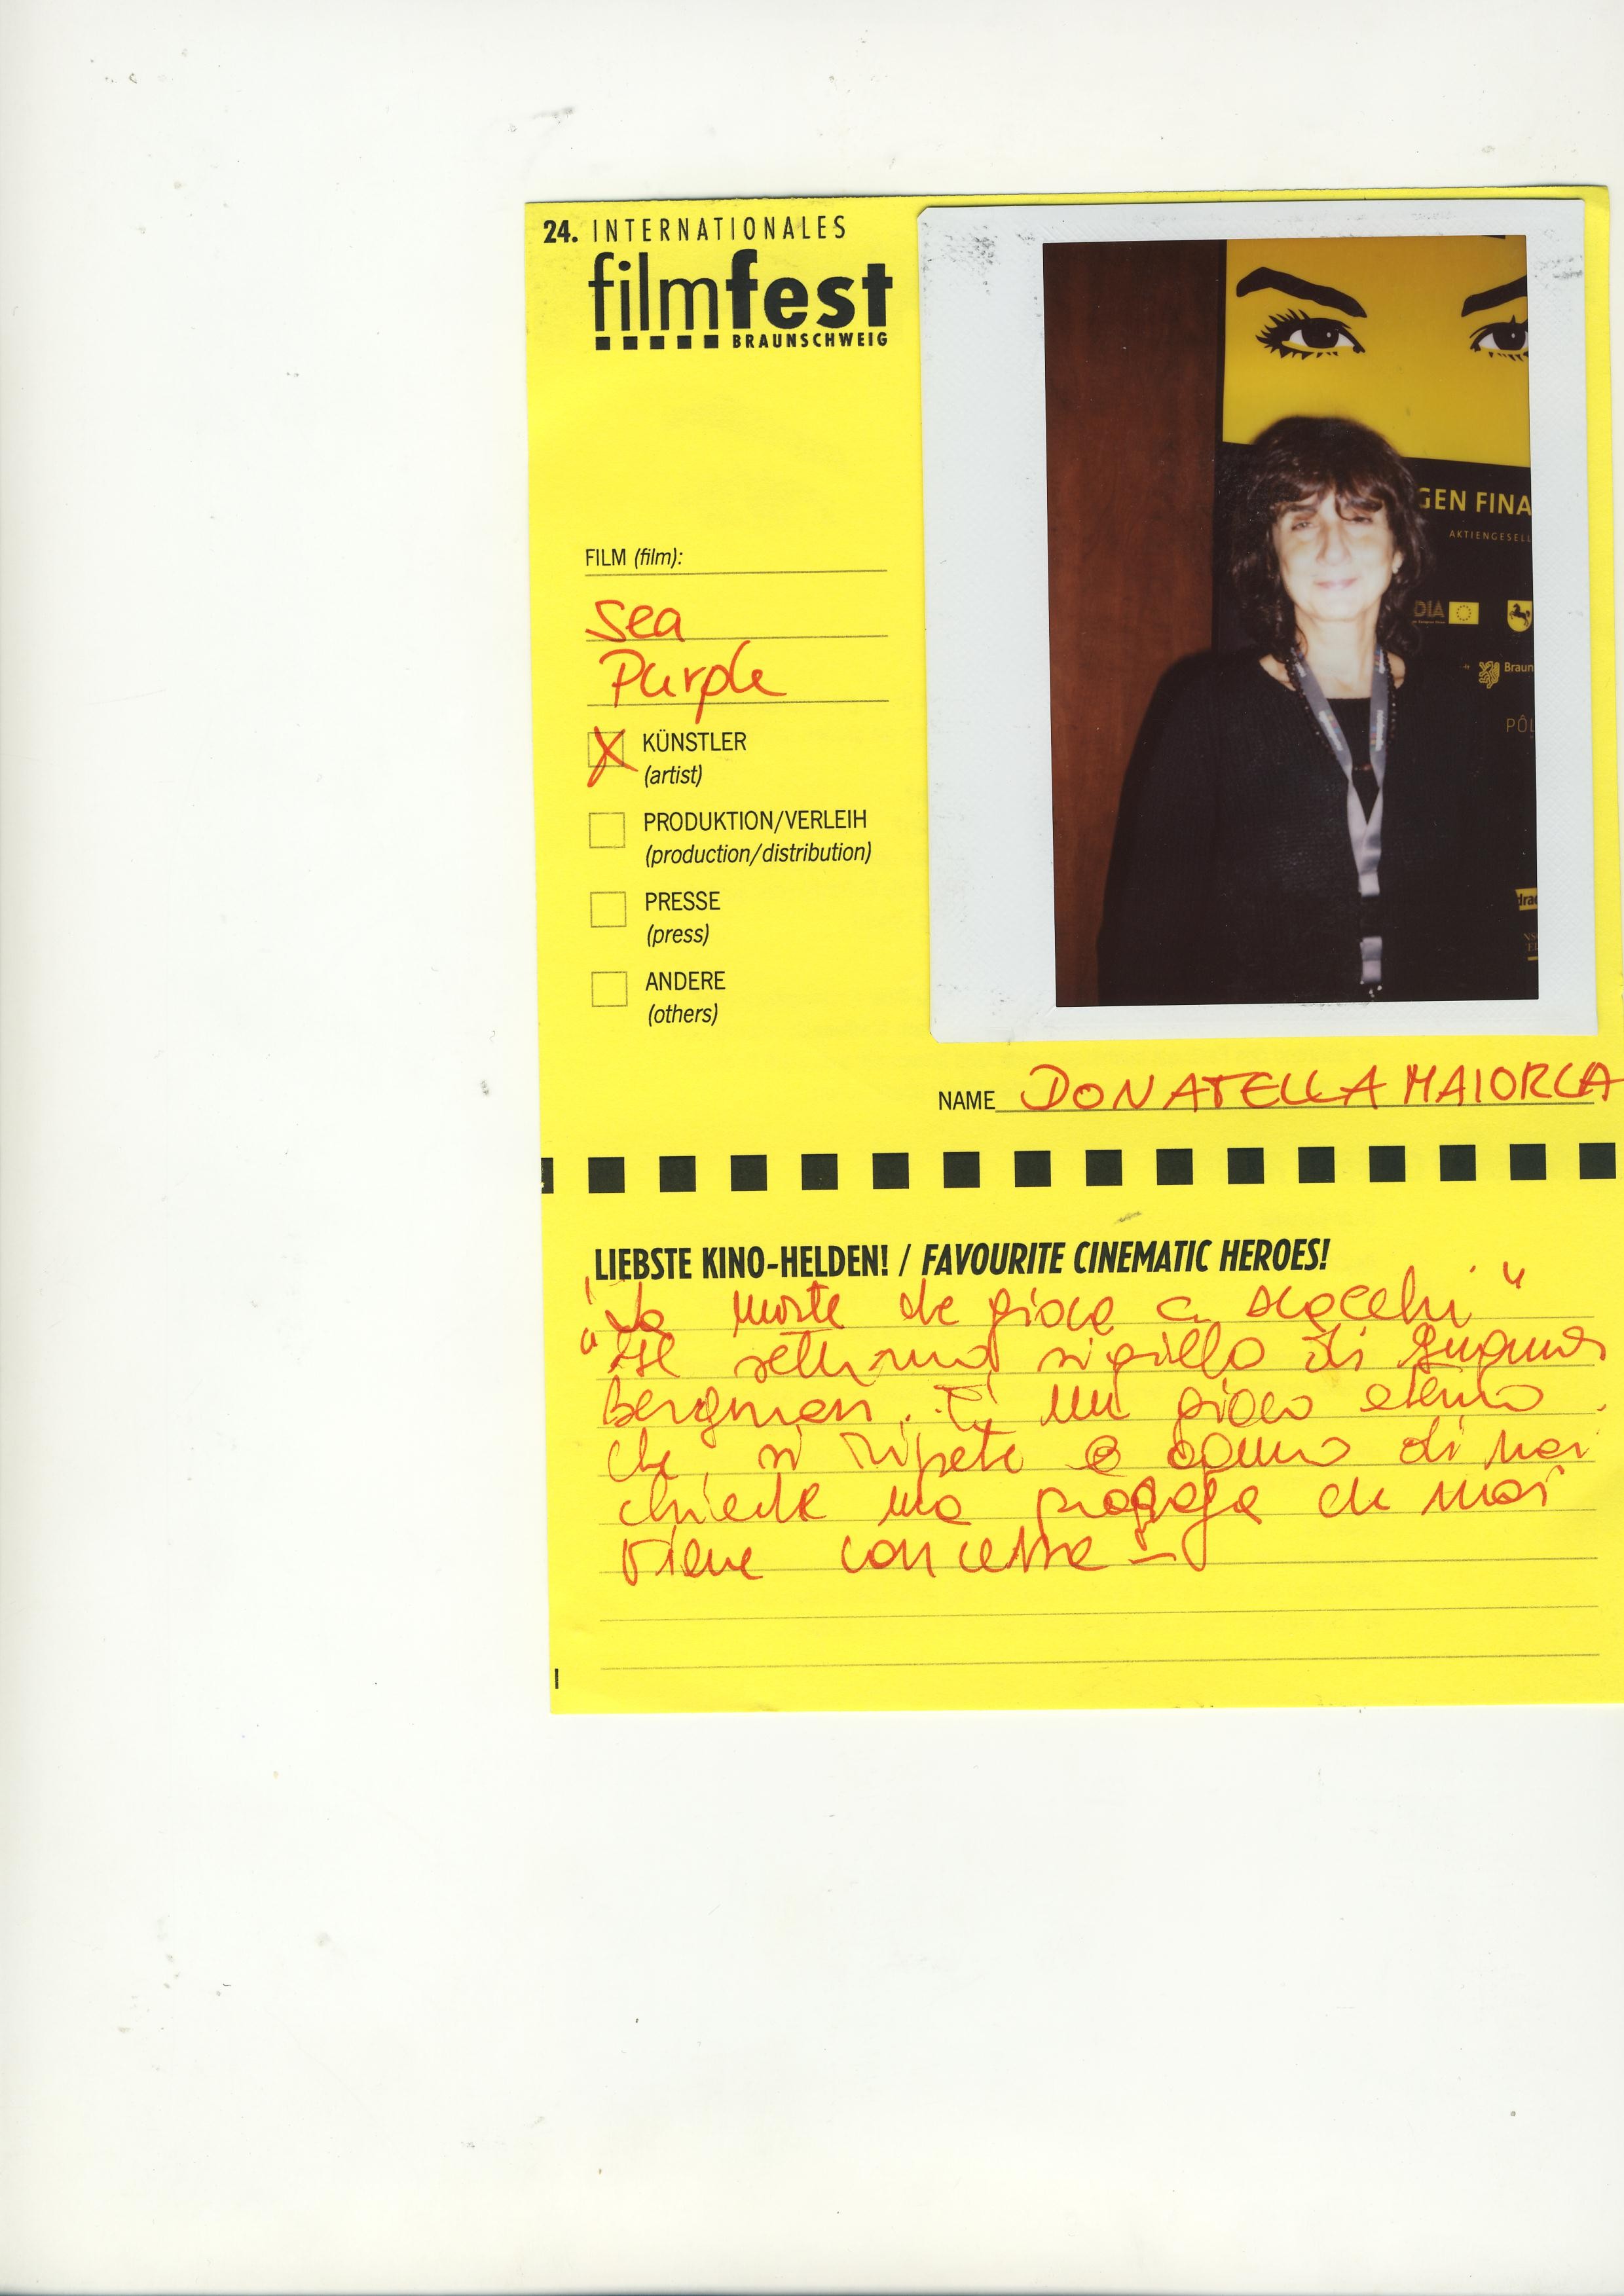 24. INTERNATIONALES
filmfest
BRAUNSCHWEIG
GEN FINA
AKTIENGESELL
DIA
Braun
PÔL
FILM (film):
Sea
Purple
X KÜNSTLER
(artist)
PRODUKTION/VERLEIH
(production/distribution)
PRESSE
(press)
ANDERE
(others)
NAME DONATELLA MAIORCA
LIEBSTE KINO-HELDEN! / FAVOURITE CINEMATIC HEROES!
"La morte che gioca a scacchi"
"Il settimo sigillo di
Bergman. È un gioco eterno
che si ripete e ognuno di noi
chiede una proroga che mai
viene concessa